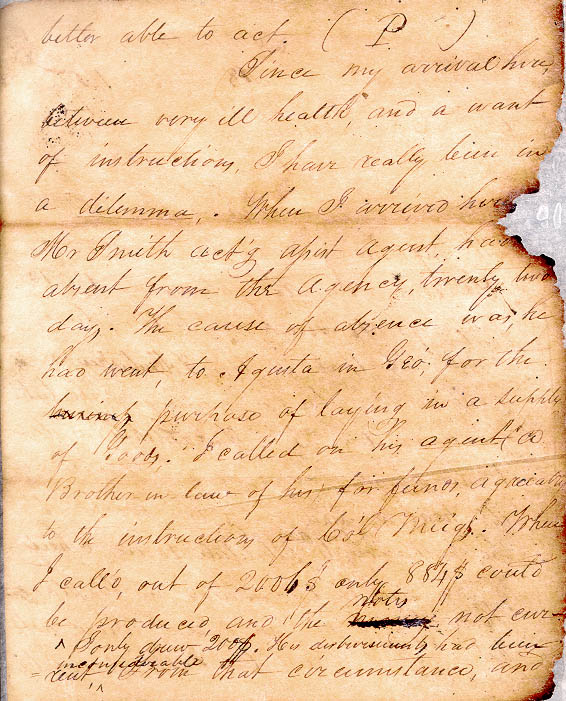 better able to act ( P )
Since my arrival here,
between very ill health, and a want
of instructions, I have really been in
a dilemma,. When I arrived here
Mr Smith act'g assist Agent, had
absent from the Agency, twenty two
days. The cause of absence was, he
had went, to Agusta in Geo. for the
purpose of laying in a supply
of Goods. I called on his agent a
Brother in law of his for funds, agreeable
to the instructions of Col Meigs. When
I call'd, out of 2006$ only 884$ could
be produced, and the notes not cur-
^ I only drew 200$. His disbursements had been
inconsiderable
= rent ^ From that circumstance, and